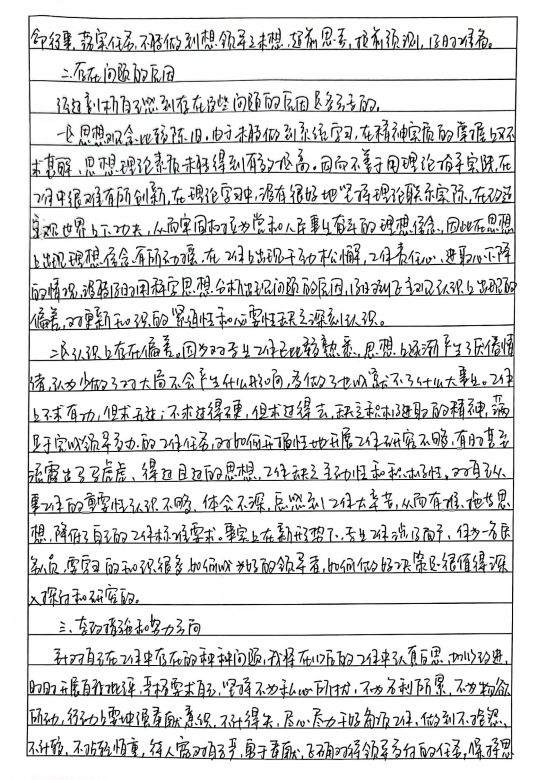 命行事,落实任务,不能做到想领导之未想,超前思考,提前预测,做好准备。
二、存在问题的原因
通过剖析自己感到存在这些问题的原因是多方面的。
一是思想观念比较陈旧。由于未能做到系统学习,在精神实质的掌握上又不
求甚解,思想理论素质未能得到有效提高。因而不善于用理论指导实际,在
工作中很难有所创新,在理论学习中,没有很好地坚持理论联系实际,在改造
主观世界上下功夫,从而牢固树立为党和人民事业奋斗的理想信念,因此在思想
上出现理想信念有所动摇,在工作上出现干劲松懈,工作责任心、进取心下降
的情况,没能很好用科学思想分析出现问题的原因,做到纠正主观认识上出现的
偏差,对更新知识的紧迫性和必要性缺乏深刻认识。
二是认识上存在偏差。因为对专业工作已比较熟悉,思想上逐渐产生了厌倦情
绪,认为少做了对大局不会产生什么影响,多做了也成就不了什么大事业。工作
上不求有功,但求无过;不求过得硬,但求过得去,缺乏积极进取的精神,满
足于完成领导交办的工作任务,对如何开拓性地开展工作研究不够,有时甚至
流露出马马虎虎、得过且过的思想,工作缺乏主动性和积极性。对自己从
事工作的重要性认识不够,体会不深,总感到工作太辛苦,从而有难、拖等思
想,降低了自己的工作标准要求。事实上在新形势下,专业工作涉及面广,作为一名民
警队员,要学习的知识很多,如何成为好的领导者,如何做好决策是很值得深
入探讨和研究的。
三、整改措施和努力方向
针对自己在工作中存在的种种问题,我将在以后的工作中认真反思,加以改进,
时时开展自我批评,严格要求自己,坚持不为私心所扰,不为名利所累,不为物欲
所动,行动上要增强奉献意识,不计得失,尽心尽力干好各项工作,做到不埋怨、
不计较,不拈轻怕重,待人宽对自己严,勇于奉献,正确对待领导交待的任务,保持思